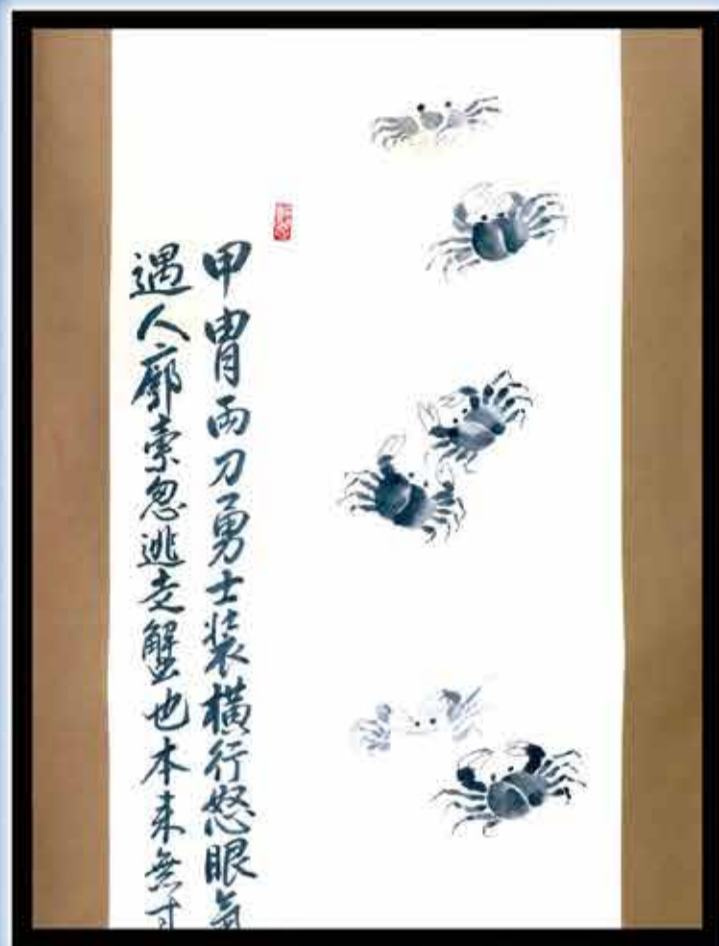 甲冑両刀勇士装横行怒眼気
遇人廓索忽逃走蟹也本来無寸